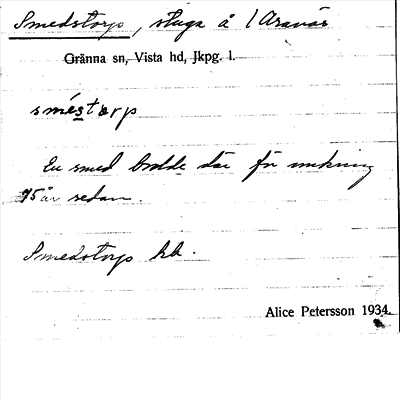 Smedstorp, stuga å 1 Aranäs
Gränna sn, Vista hd, Jkpg. l.
sméstɷrp
En smed bodde där för omkring
75 år sedan.
Smedstorp hb.
Alice Petersson 1934.